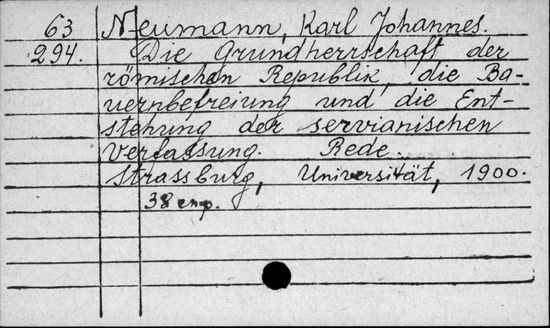 63 Neumann, Karl Johannes.
294. Die Grundherrschaft der
römischen Republik, die Ba-
uernbefreiung und die Ent-
stehung der servianischen
Verfassung. Rede.
Strassburg, Universität, 1900.
38 стр.